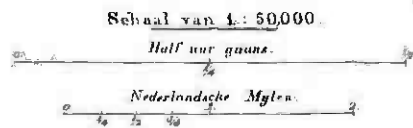 Schaal van 1.: 50,000.
Half uur gaans.
0 1/4 1/2
Nederlandsche Mylen.
0 1/4 1/2 3/4 1 2